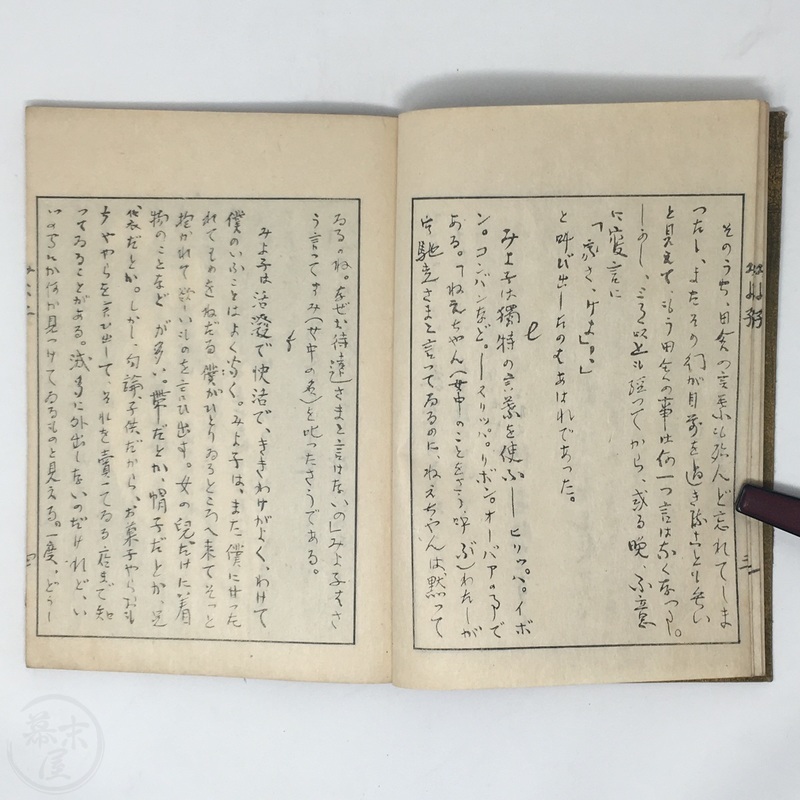 そのうち、田舎の言葉も殆んど忘れてしま
つたし、またその
と見えて、もう田舎の事は何一つ言はなくなつた。
しかし、三月以上も経つてから、或る晩、不意
に寝言に
と呼び出したのもあはれであつた。
も
みよ子は獨特の言葉を使ふ――ヒリッパ。イボ
ン。コンバンなど。――スリッパ。リボン。オーバアの事で
ある。「ねえちやん(女中のことをさう呼ぶ)わたしが
御馳走さまと言つてゐるのに、ねえちやんは黙つて
三
ゐるのね。なぜお待遠さまと言はないの」みよ子はさ
う言つてすみ(女中の名)を叱つたさうである。
みよ子は活溌で快活で、ききわけがよく、わけて
僕のいふことはよく聞く。みよ子は、また僕に甘つた
れてものをねだる。僕がひとりゐるところへ来てそつと
抱かれて欲しいものを言ひ出す。女の兒だけに着
物のことなどが多い。帯だとか、帽子だとか、足
袋だとか。しかし、勿論子供だから、お菓子やらおも
ちややらを言ひ出して、それを賣つてゐる店まで知
つてゐることがある。滅多に外出しないのだけれど、い
いつの間にか何か見つけてゐるものと見える。一度、どうし
幕末屋